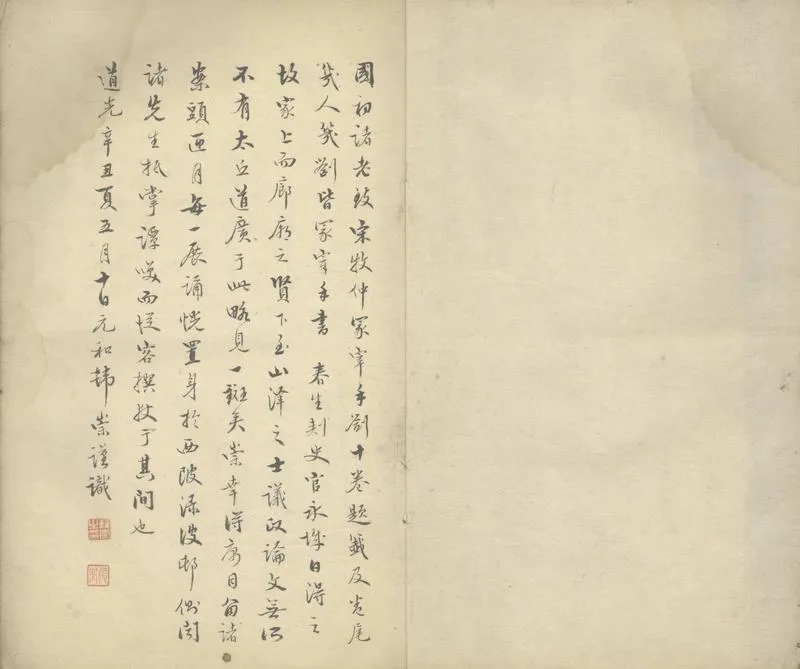 國初諸老致宋牧仲冢宰手劄十卷題籤及卷尾
幾人幾劄皆冢宰手書 春生刺史官永城日得之
故家上而廊廟之賢下至山澤之士議政論文無所
不有太丘道廣于此略見一斑矣崇幸得寓目留諸
案頭匝月每一展誦恍置身於西陂淥波邨側聞
諸先生抵掌譚笑而從容撰杖于其間也
道光辛丑夏五月十日元和韓崇謹識